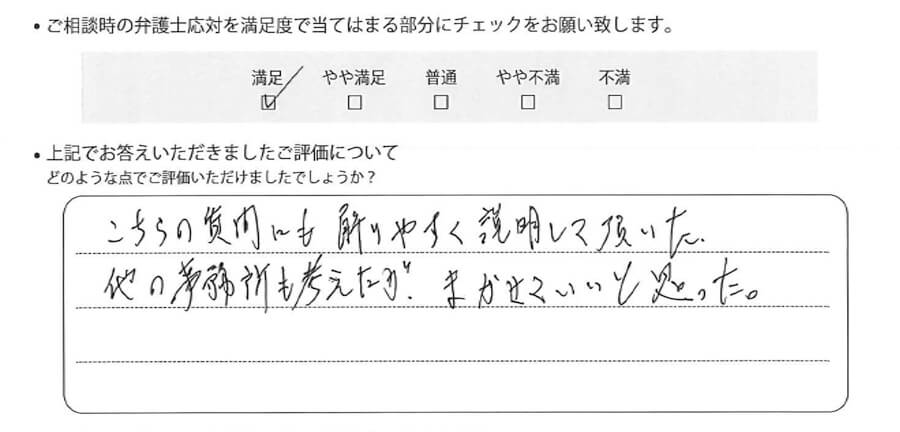 ・ご相談時の弁護士応対を満足度で当てはまる部分にチェックをお願い致します。
満足 やや満足 普通 やや不満 不満
☑ □ □ □ □
・上記でお答えいただきましたご評価について
どのような点でご評価いただけましたでしょうか？
こちらの質問にも解りやすく説明して頂いた、
他の事務所も考えたが、まかせていいと思った。